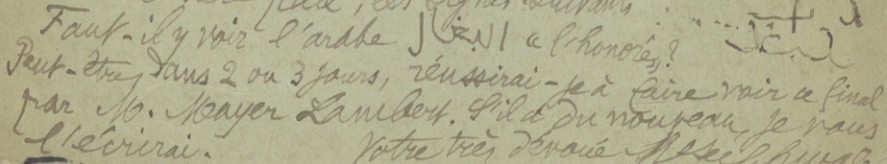 les lignes suivantes
Faut-il y voir l'arabe المبجل « l'honoré »?
Peut-être dans 2 ou 3 jours, réussirai-je à faire voir ce final
par M. Mayer Lambert. S'il a du nouveau, je vous
l'écrirai. Votre très dévoué